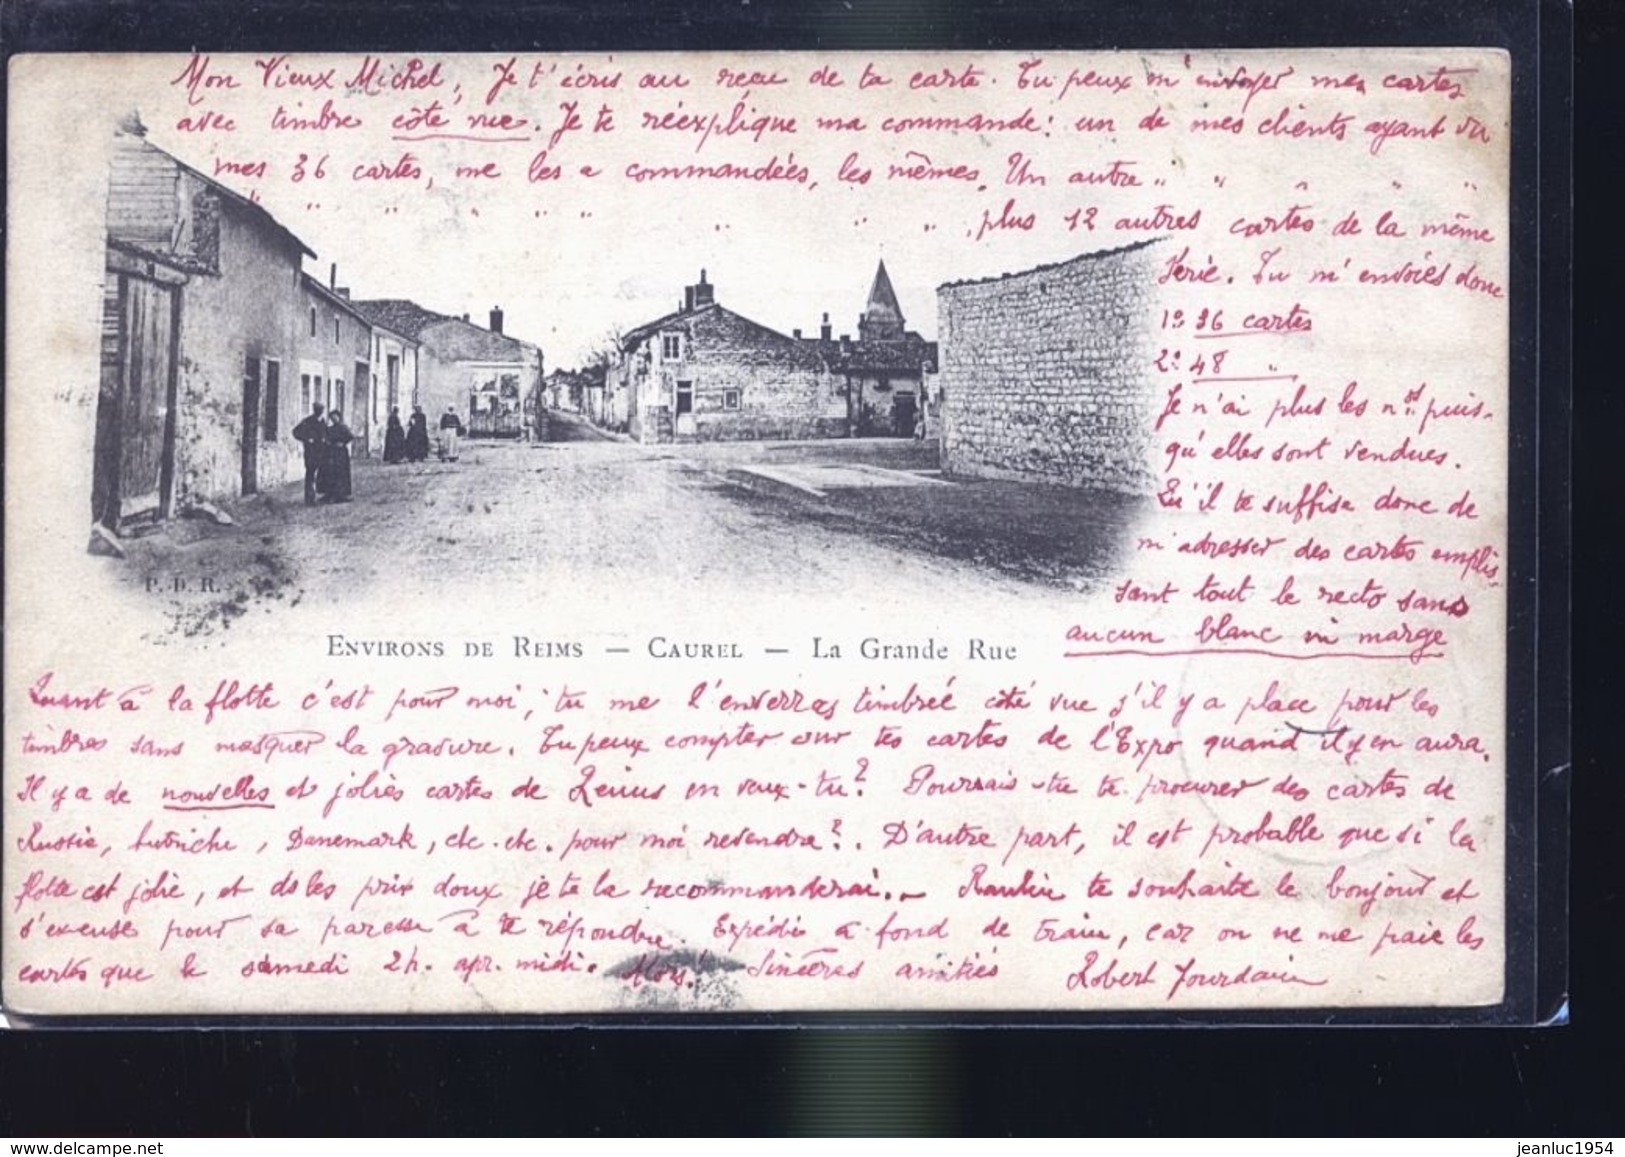 Mon Vieux Michel, Je t'écris au reçu de ta carte. Tu peux m'envoyer mes cartes
avec timbre côté vue. Je te réexplique ma commande : un de mes clients ayant vu
mes 36 cartes, me les a commandées, les mêmes. Un autre " " " " "
" " " " " " " " " , plus 12 autres cartes de la même
série. Tu m'envoies donc
1º 36 cartes
2º 48 "
Je n'ai plus les nos puis-
qu'elles sont vendues.
Qu'il te suffise donc de
m'adresser des cartes emplis-
sant tout le recto sans
aucun blanc ni marge
P. D. R.
ENVIRONS DE REIMS — CAUREL — La Grande Rue
Quant à la flotte c'est pour moi ; tu me l'enverras timbrée côté vue s'il y a place pour les
timbres sans masquer la gravure. Tu peux compter sur tes cartes de l'Expo quand il y en aura.
Il y a de nouvelles et jolies cartes de Reims en veux-tu ? Pourrais-tu te procurer des cartes de
Russie, Autriche, Danemark, etc. etc. pour moi revendre ? . D'autre part, il est probable que si la
flotte est jolie, et ds les prix doux je te la recommanderai. — te souhaite le bonjour et
s'excuse pour sa paresse à te répondre. Expédie à fond de train, car on ne me paie les
cartes que le samedi 2 h. apr. midi. Alors ! Sincères amitiés Robert Jourdain
www.delcampe.net
jeanluc1954